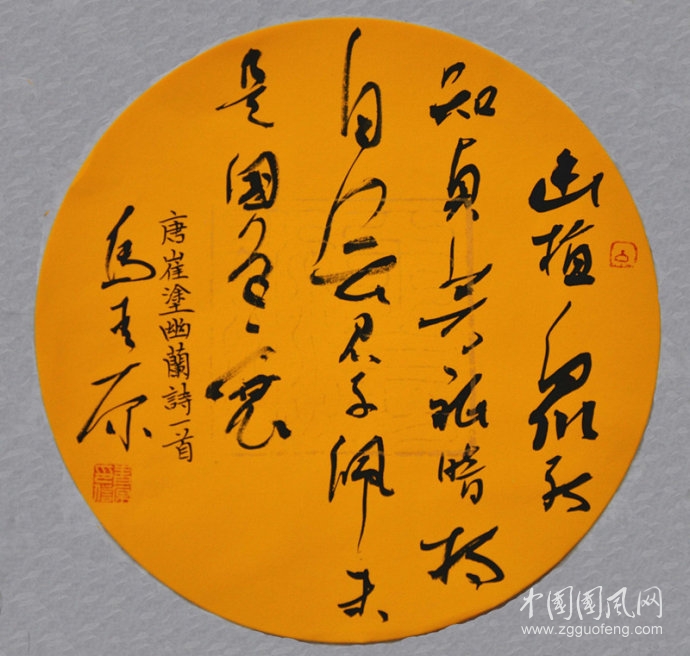 幽植眾能
知貞芳祇暗持
自無君子佩未
是國香衰
唐崔塗幽蘭詩一首
中国国风网
www.zgguofeng.com